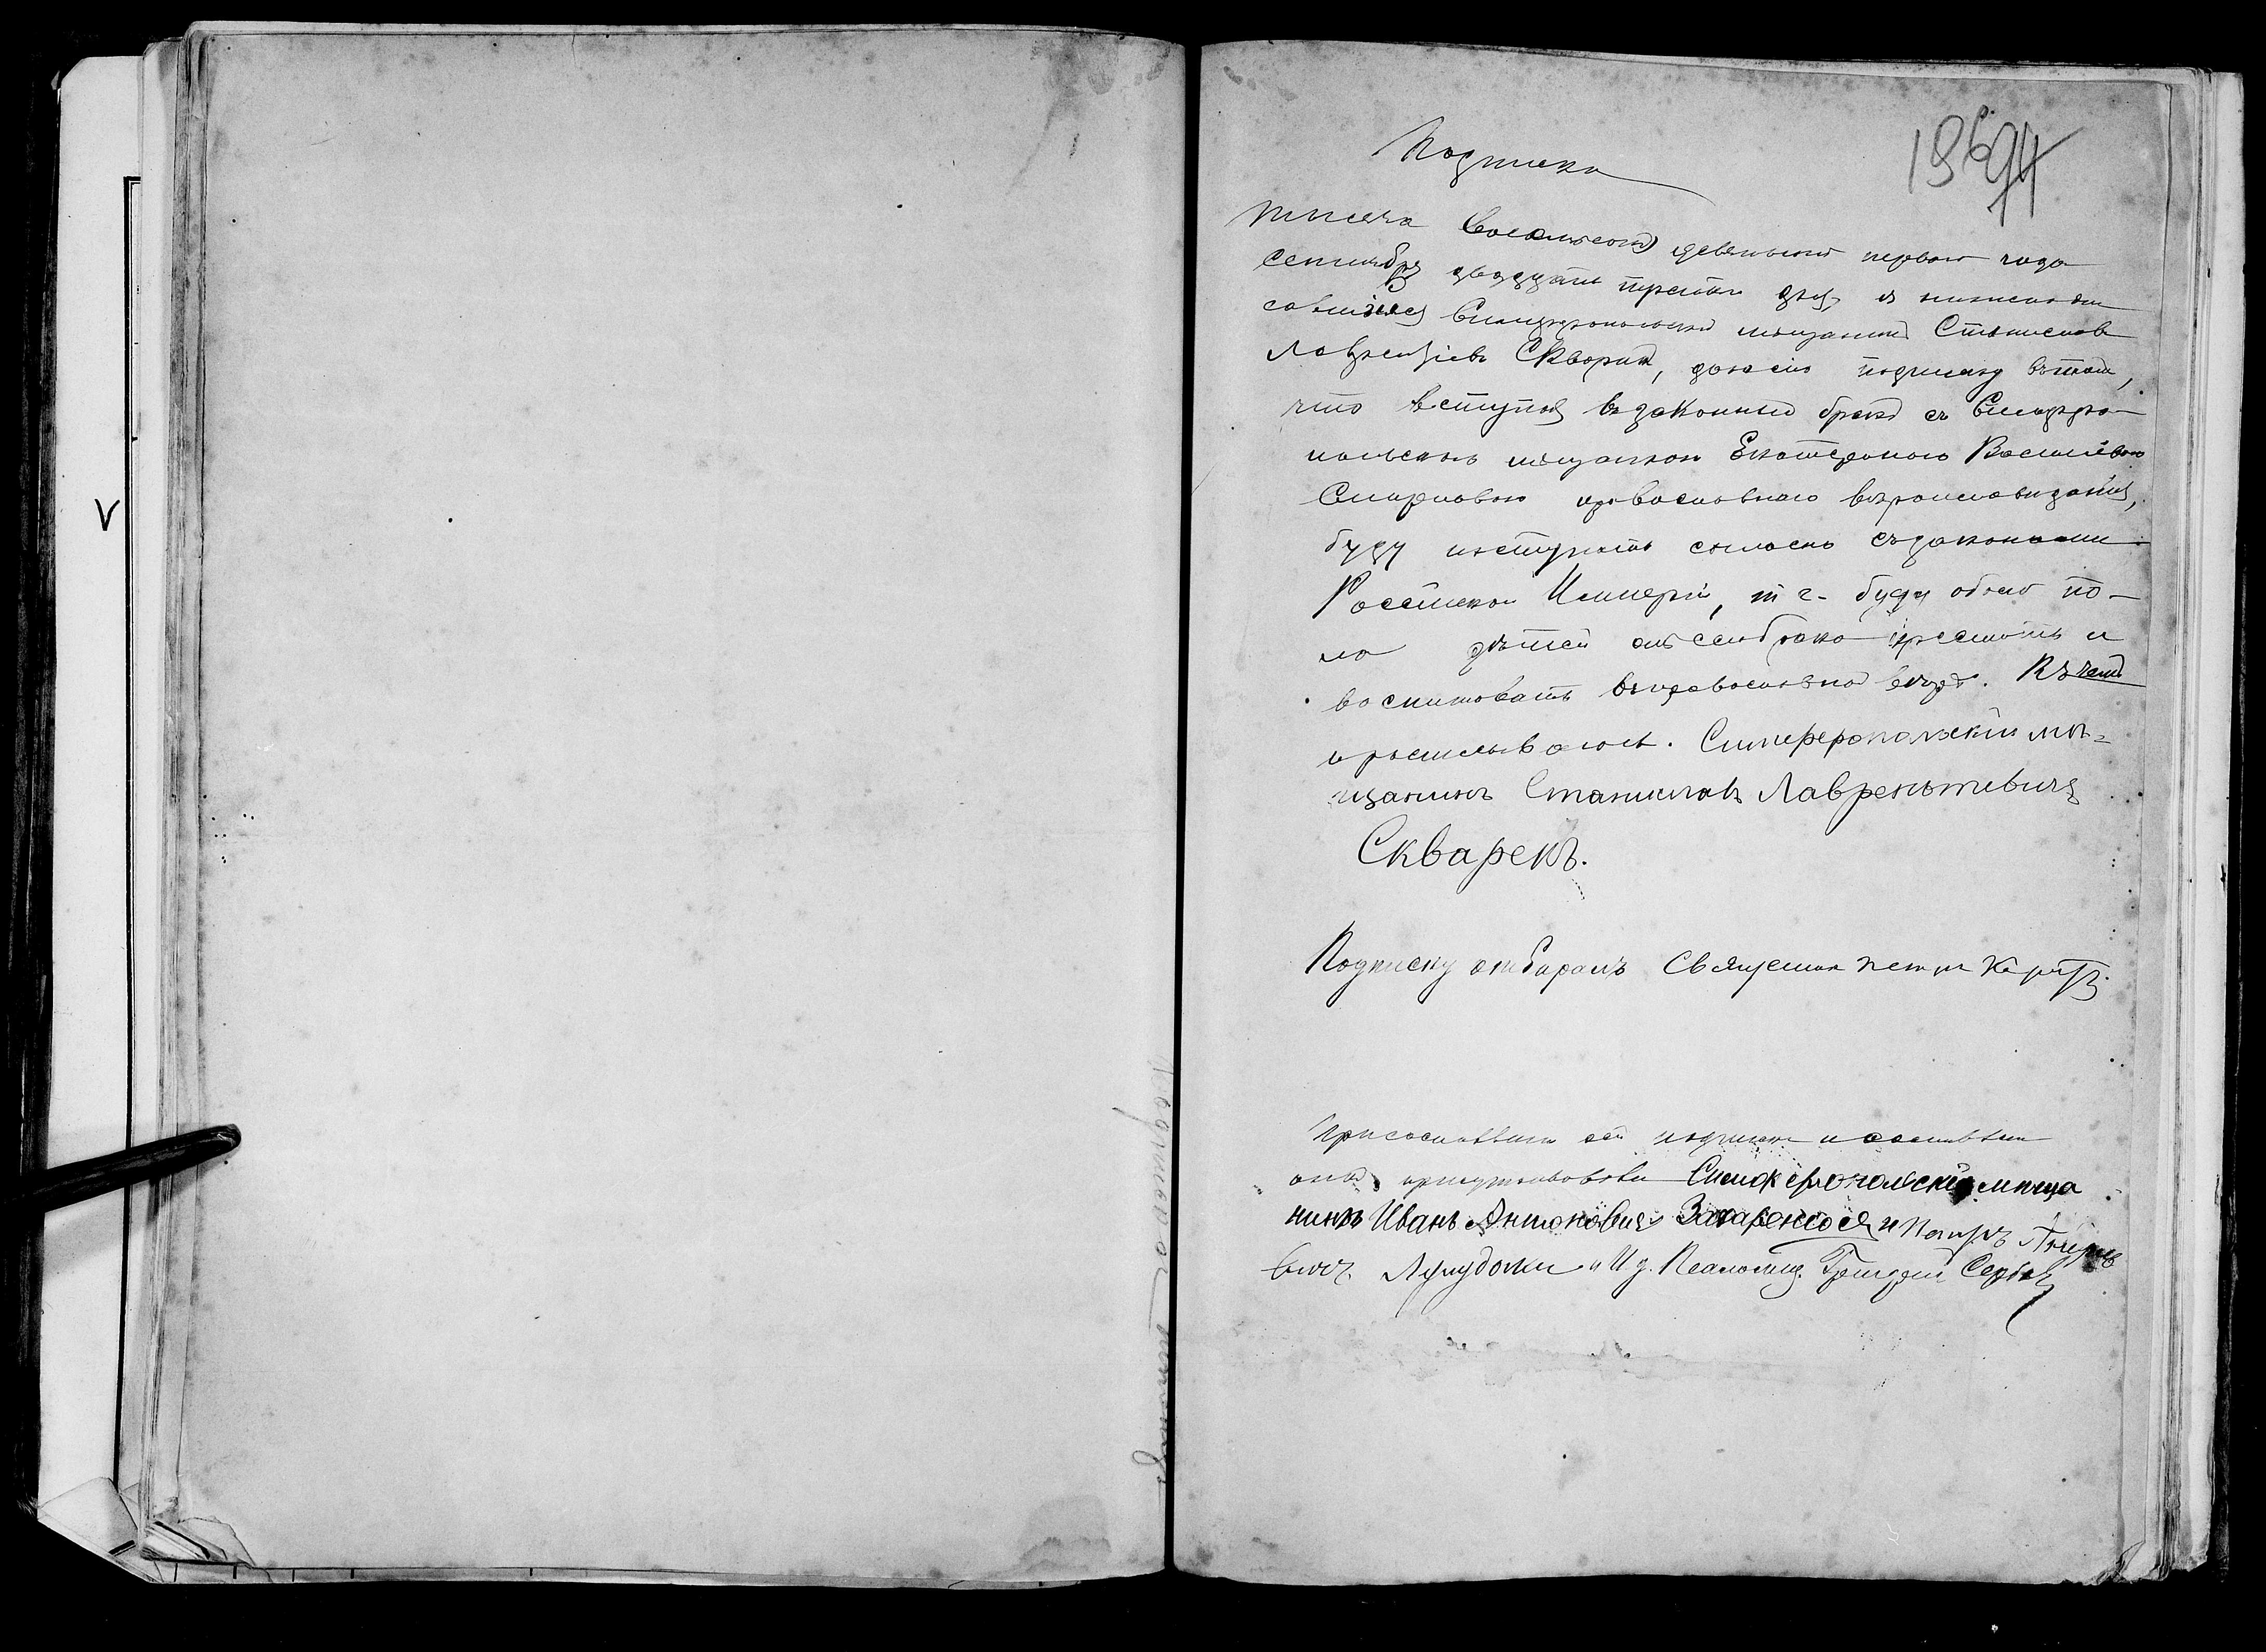 Подписка
196
94
тысяча восемьсотъ девяносто перваго года
сентября двадцать третьяго дня, я нижеподпи
савшійся Симферопольскій мѣщанинъ Станиславъ
Лаврентіевъ Скварекъ, далъ сію подписку въ томъ,
что вступая въ законный бракъ съ Симферо-
польскою мѣщанкою Екатериною Васильевою
Смирновою православнаго вѣроисповѣданія,
буду поступать согласно съ законами
Россійской Имперіи, т е. буду обоего по-
ла дѣтей отъ сего брака крестить и
воспитовать въ православной вѣрѣ. Въ чемъ
и росписываюсь. Симферопольскій мѣ-
щанинъ Станиславъ Лаврентьтевичъ
Скварекъ.
Подписку отбиралъ Священникъ Петръ
При составленіи сей подписки и составленіи
оной присутствовали Симферопольскій меща
нинъ Иванъ Антоновичъ и Петръ
вичъ и И. д. Псаломщ. Григорій Сербовъ